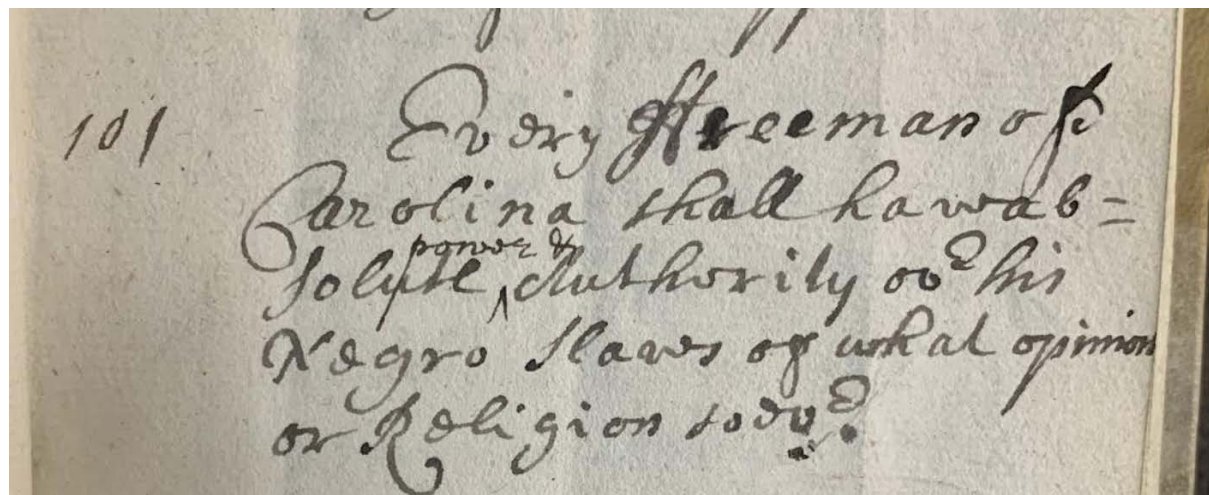 101 Every ffreeman of
Carolina shall have ab=
solute power & Authority ovr his
Negro slaves of what opinion
or Religion soevr.